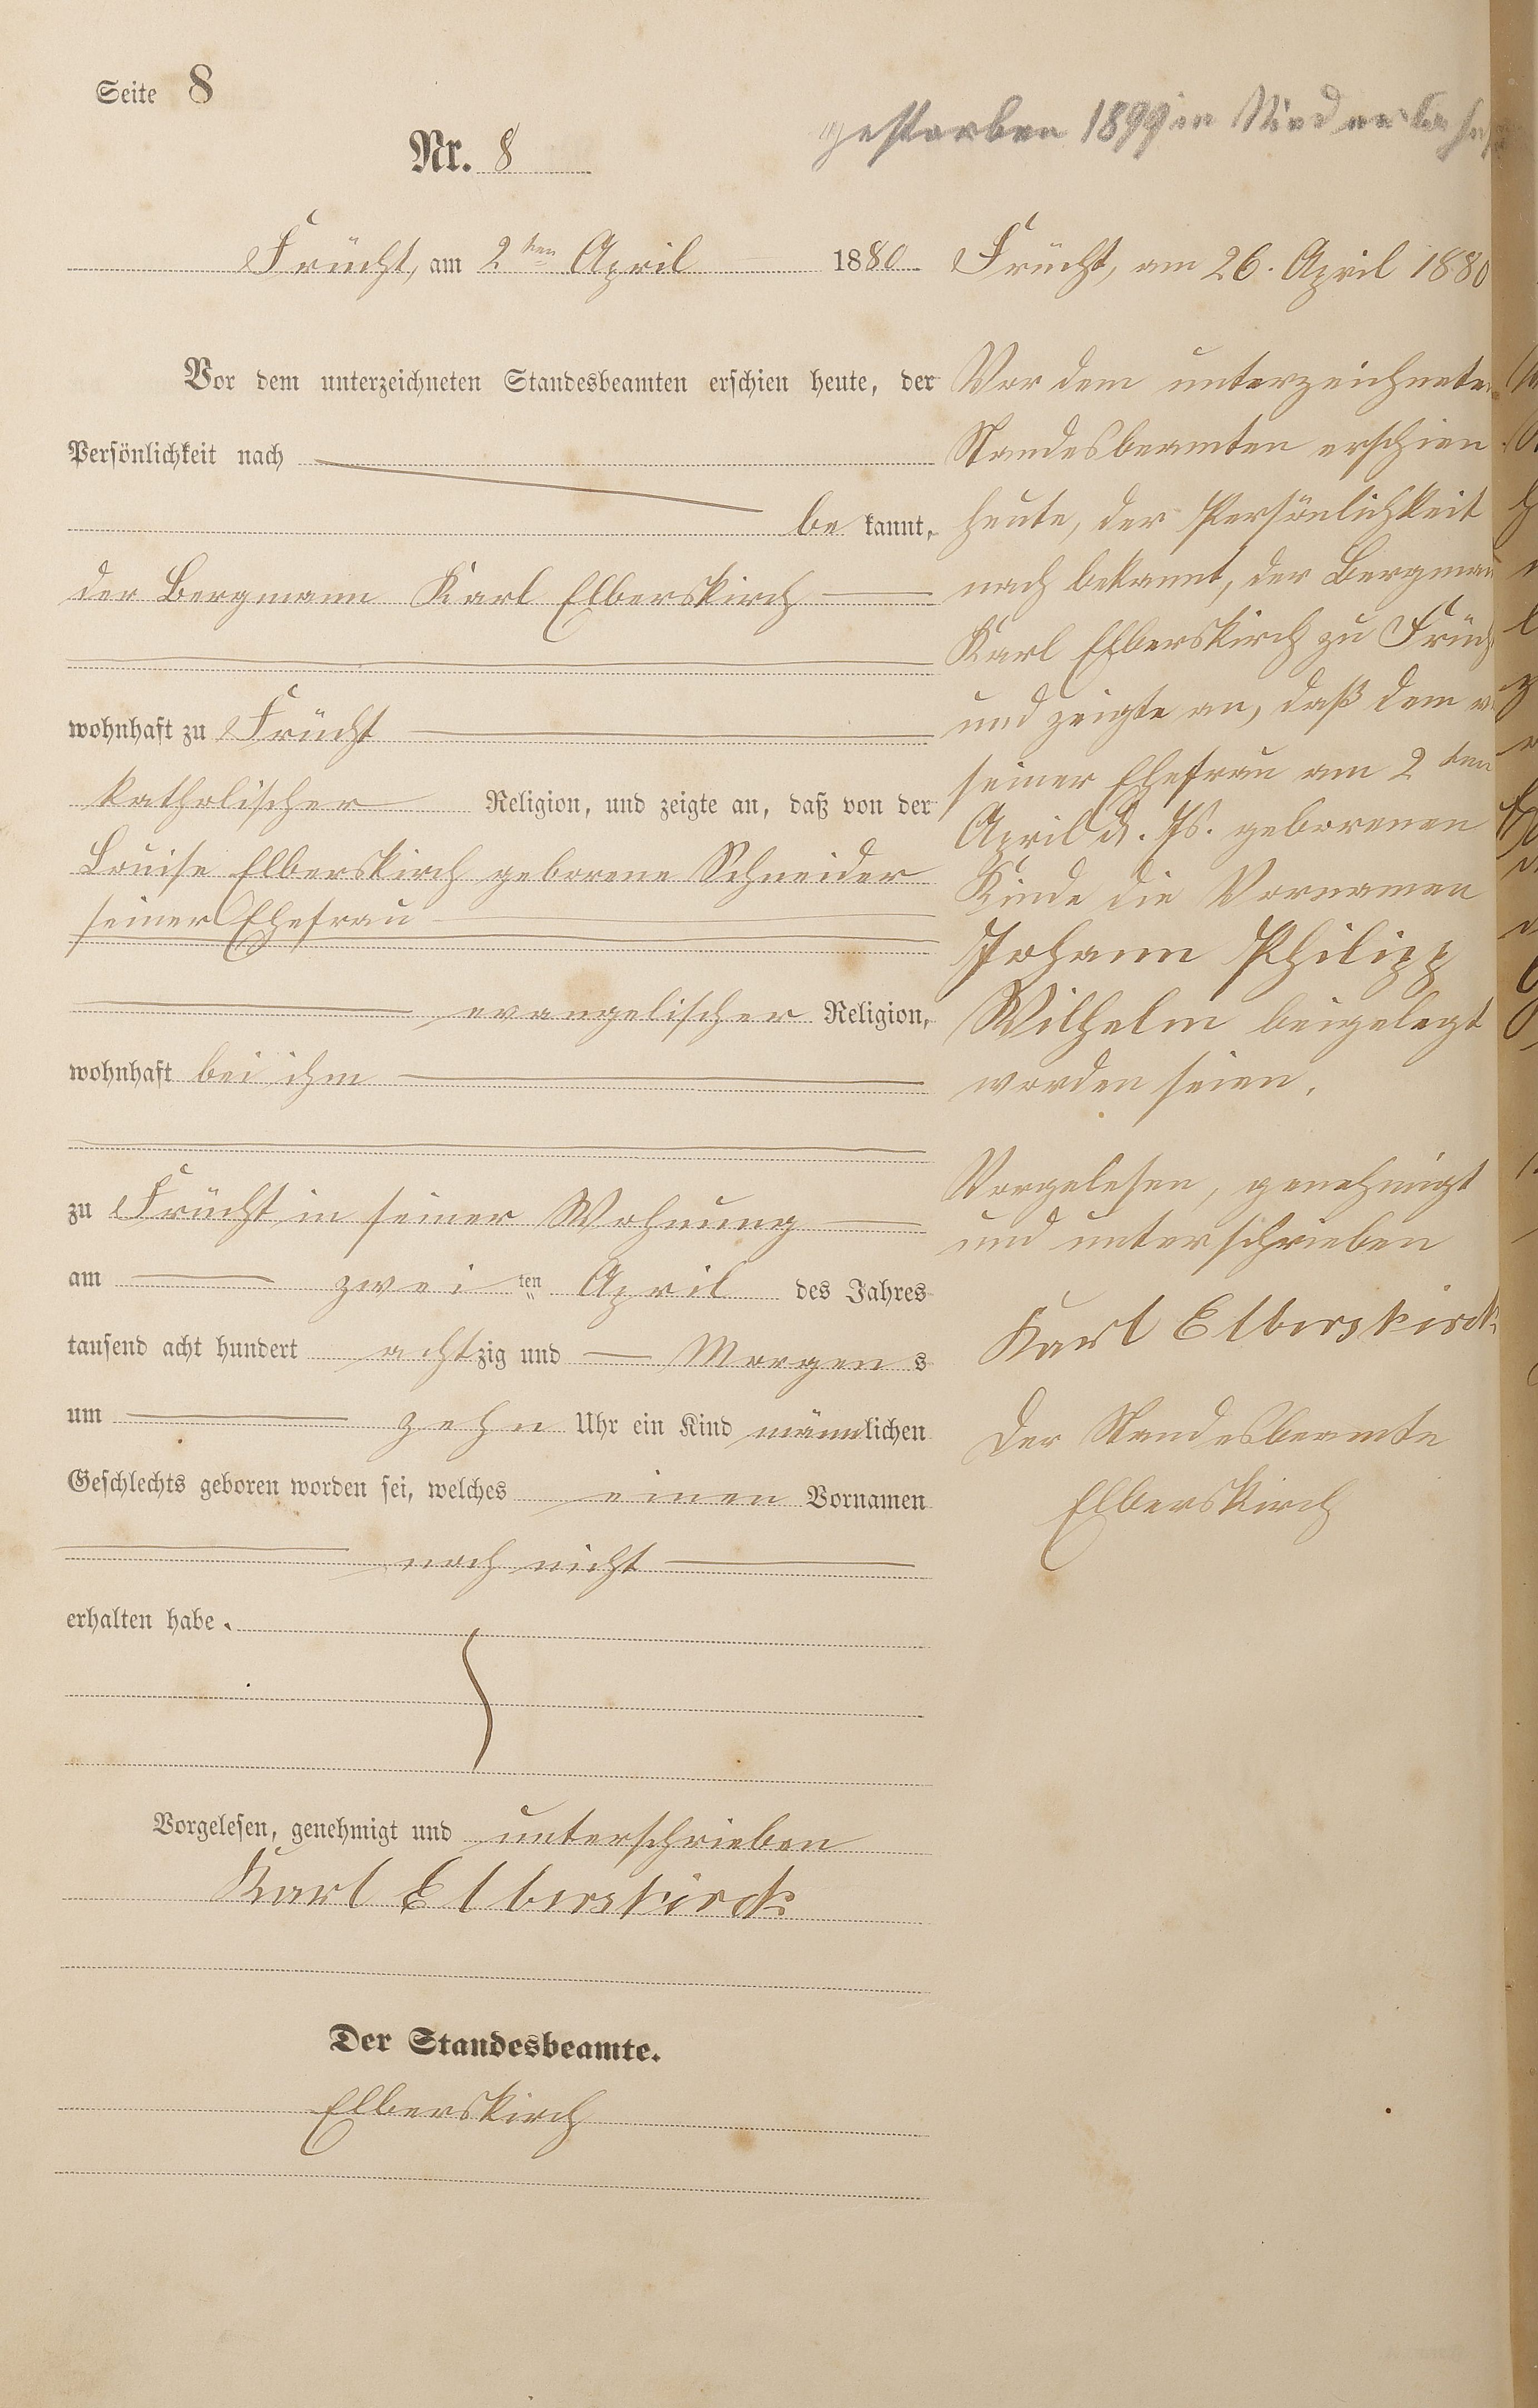 Seite 8
Nr. 8
gestorben 1899 in
Frücht, am 2ten April 1880
Vor dem unterzeichneten Standesbeamten erschien heute, der
Persönlichkeit nach
be kannt,
der Bergmann Karl Elberskirch
wohnhaft zu Frücht
katholischer Religion, und zeigte an, daß von der
Louise Elberskirch geborene Schneider
seiner Ehefrau
evangelischer Religion,
wohnhaft bei ihm
zu Frücht in seiner Wohnung
am zwei ten April des Jahres
tausend acht hundert achtzig und Morgens
um zehn Uhr ein Kind männlichen
Geschlechts geboren worden sei, welches einen Vornamen
noch nicht
erhalten habe.
Vorgelesen, genehmigt und unterschrieben
Karl Elberskirch
Der Standesbeamte.
Elberskirch
Frücht, am 26. April 1880
Vor dem unterzeichneten
Standesbeamten erschien
heute, der Persönlichkeit
nach bekannt, der Bergmann
Karl Elberskirch zu Frücht
und zeigte an, daß dem v
seiner Ehefrau am 2ten
April d. Js. geborenen
Kinde die Vornamen
Johann Philipp
Wilhelm beigelegt
worden seien.
Vorgelesen, genehmigt
und unterschrieben
Karl Elberskirch
Der Standesbeamte
Elberskirch